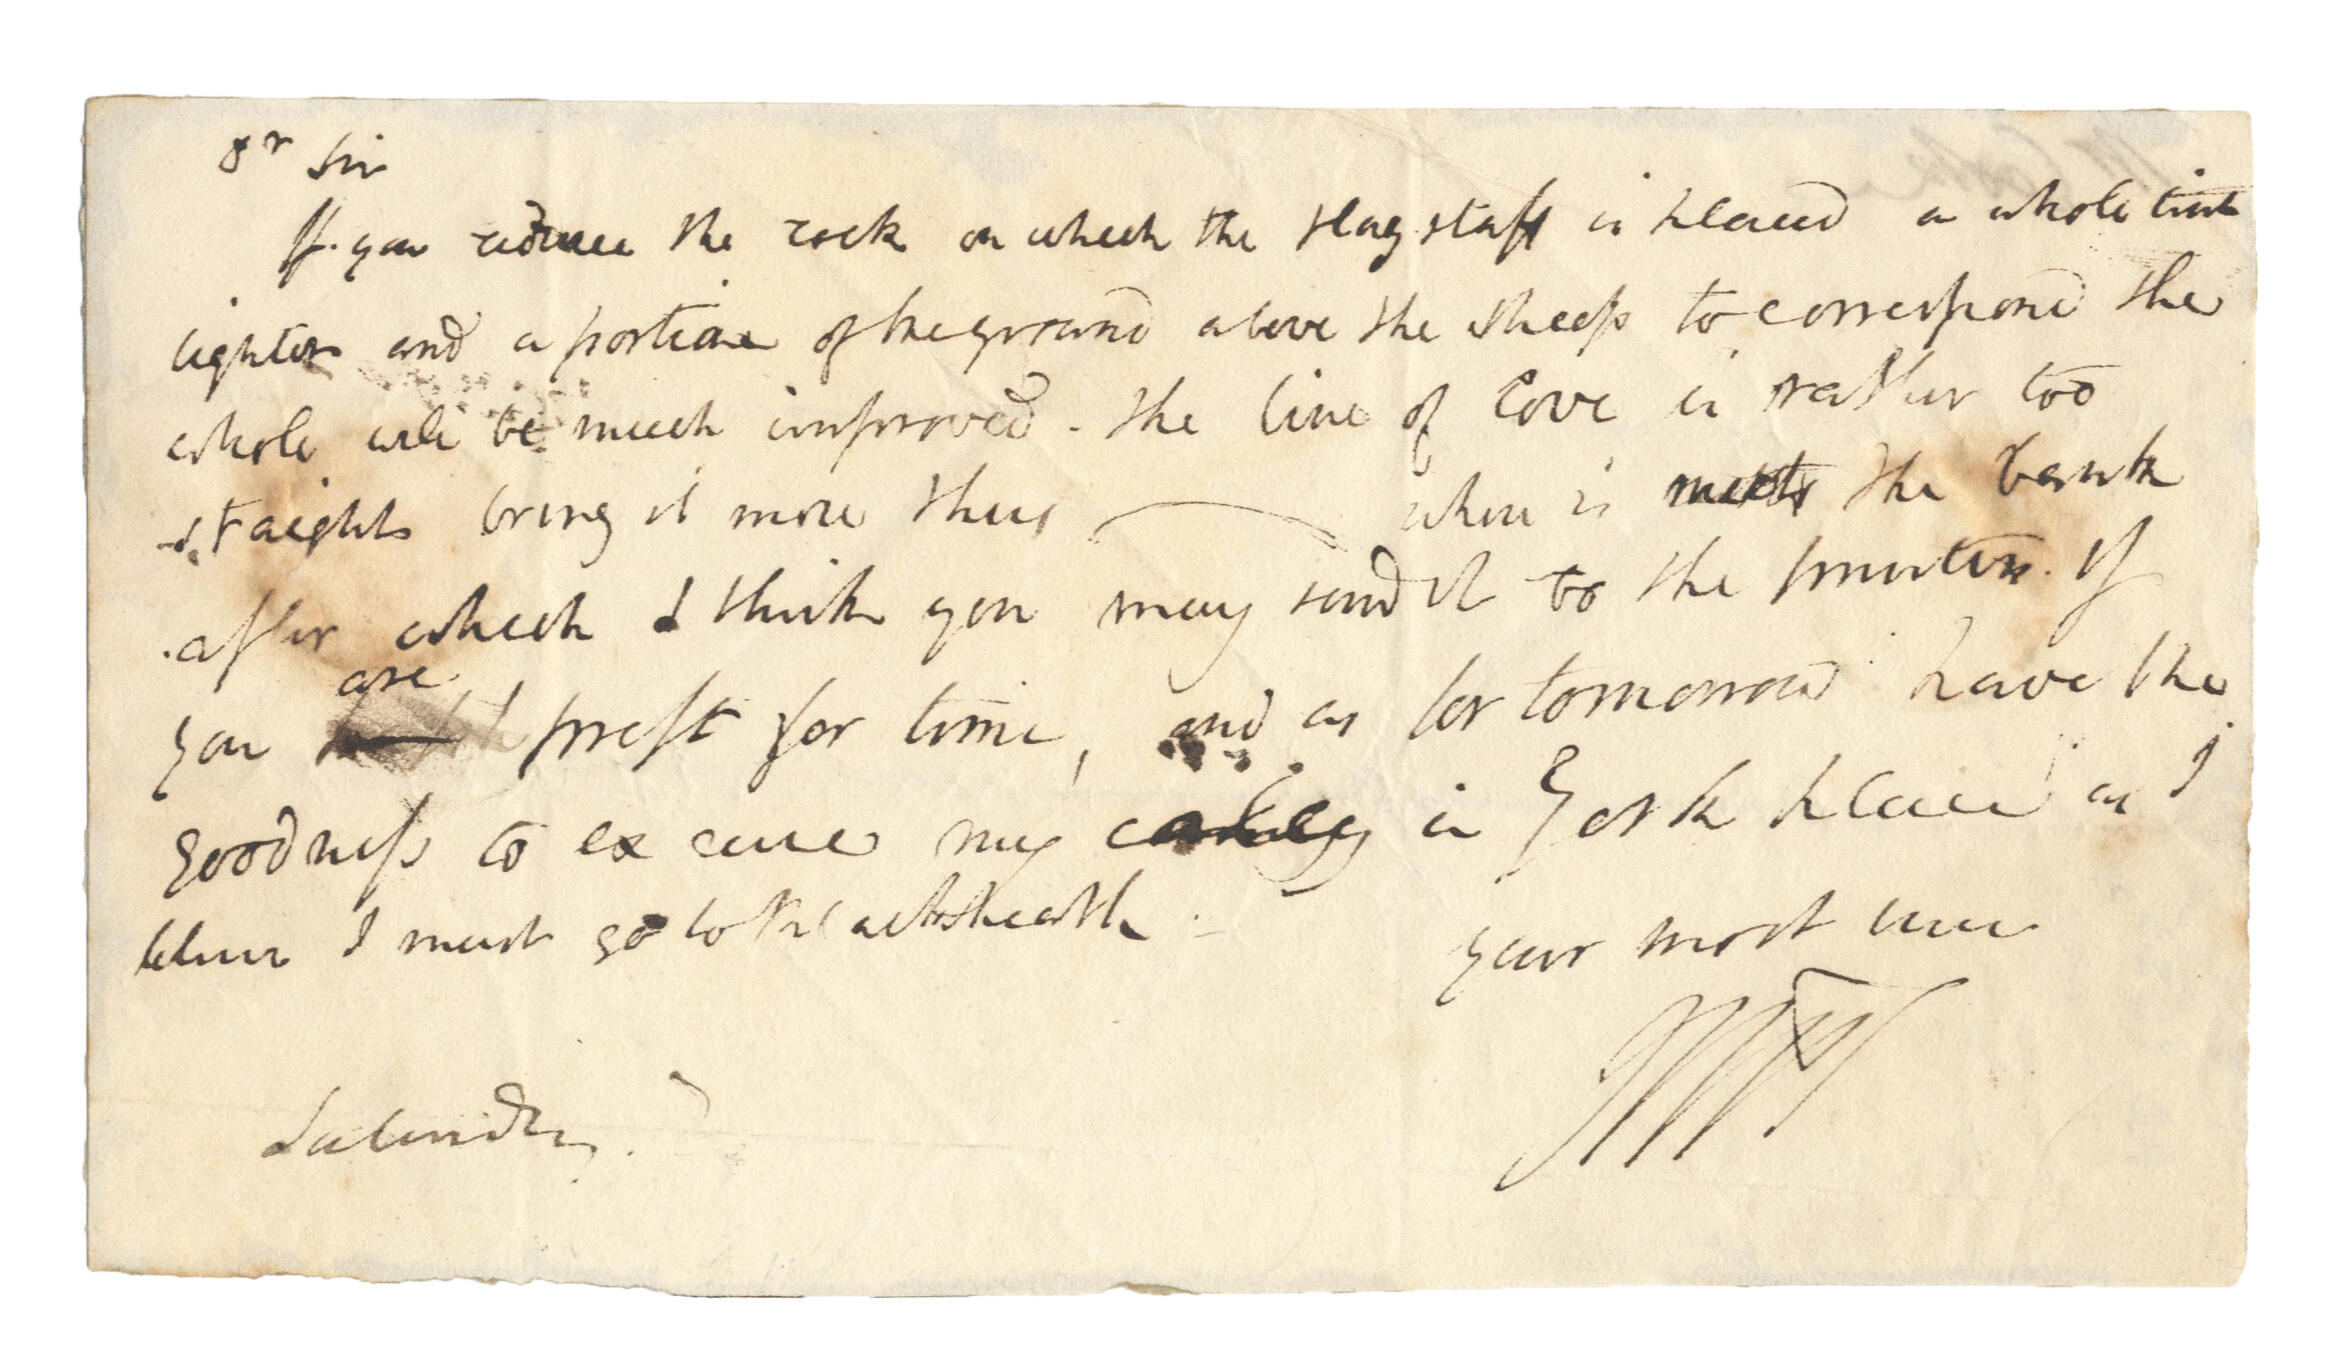 Dr Sir
If you reduce the rock on which the Flagstaff is placed a whole tint
lighter and a portion of the ground above the sheep to correspond the
whole will be much improved. The line of Cove is rather too
straight bring it more thus when it meets the bank
after which I think you may send it to the printers. If
are
you prest for time, and as for tomorrow have the
goodness to excuse my calling in York place as I
believe I must go to Blackheath.
Your most truly
JMWT
Saturday